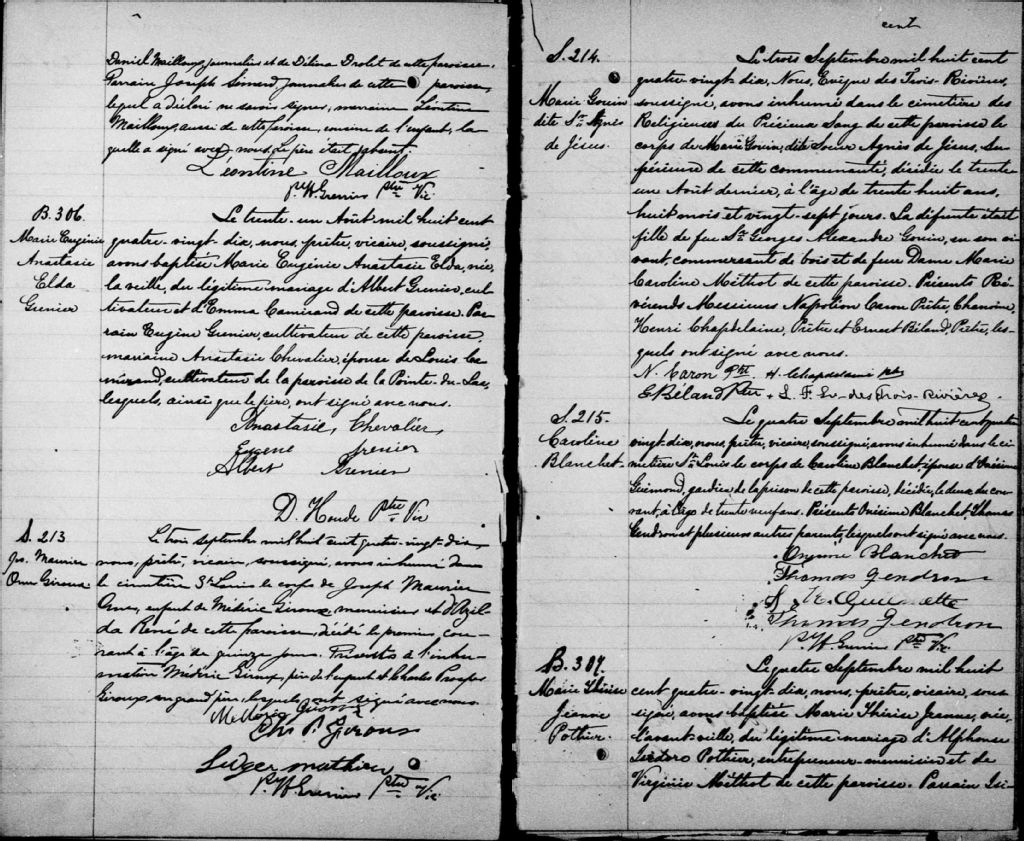 Daniel Mailloux, journalier et de Délina Drolet de cette paroisse.
Parrain Joseph Simard journalier de cette paroisse,
lequel a déclaré ne savoir signer, marraine Léontine
Mailloux, aussi de cette paroisse, cousine de l'enfant, la
quelle a signé avec nous. Le père était absent.
Léontine Mailloux
Ptre Vic
B. 306.
Marie Eugénie
Anastasie
Elda
Grenier
Le trente-un Août mil huit cent
quatre-vingt-dix, nous, prêtre, vicaire, soussigné,
avons baptisé Marie Eugénie Anastasie Elda, née
la veille, du légitime mariage d'Albert Grenier, cul-
tivateur et d'Emma Camirand de cette paroisse. Par-
rain Eugène Grenier, cultivateur de cette paroisse,
marraine Anastasie Chevalier, épouse de Louis Ca-
mirand, cultivateur de la paroisse de la Pointe-du-Lac,
lesquels, ainsi que le père, ont signé avec nous.
Anastasie Chevalier
Eugene Grenier
Albert Grenier
D. Houde Ptre Vic
S. 213
Jos. Maurice
Omer Giroux
Le trois septembre mil huit cent quatre-vingt-dix,
nous, prêtre, vicaire, soussigné, avons inhumé dans
le cimetière St Louis le corps de Joseph Maurice
Omer, enfant de Médéric Giroux, menuisier et d'Azil-
da René de cette paroisse, décédé le premier cou-
rant à l'âge de quinze jours. Présents à l'inhu-
mation Médéric Giroux, père de l'enfant et Charles Prosper
Giroux, son grand père, lesquels ont signé avec nous.
Giroux
Chs P. Giroux
Ludger Mathieu
Ptre Vic
cent
S. 214.
Marie Gouin
dite Sr Agnès
de Jésus.
Le trois Septembre mil huit cent
quatre vingt-dix, Nous, Evêque des Trois-Rivières,
soussigné, avons inhumé dans le cimetière des
Religieuses du Précieux Sang de cette paroisse le
corps de Marie Gouin, dite Soeur Agnès de Jésus, Su-
périeure de cette communauté, décédée le trente-
une Août dernier, à l'âge de trente huit ans,
huit mois et vingt-sept jours. La défunte était
fille de feu Sr Georges Alexandre Gouin, en son vi-
vant, commerçant de bois et de feue Dame Marie
Caroline Méthot de cette paroisse. Présents Ré-
vérends Messieurs Napoléon Caron Prêtre, Chanoine,
Henri Chapdelaine, Prêtre et Ernest Béland, Prêtre, les-
quels ont signé avec nous.
N. Caron Ptre H. Chapdelaine Ptre
E. Béland Ptre + L. F. Ev. des Trois-Rivières.
S. 215.
Caroline
Blanchet.
Le quatre Septembre mil huit cent quatre
vingt-dix, nous, prêtre, vicaire, soussigné, avons inhumé dans le ci-
metière St Louis le corps de Caroline Blanchet, épouse d'Onésime
Guimond, gardien de la prison de cette paroisse, décédée, le deux du cou-
rant, à l'âge de trente neuf ans. Présents Onésime Blanchet, Thomas
Gendron et plusieurs autres parents, lesquels ont signé avec nous.
Blanchet
Thomas Gendron
Thomas Gendron
Ptre Vic
B. 307.
Marie Thérèse
Jeanne
Pothier.
Le quatre Septembre mil huit
cent quatre-vingt-dix, nous, prêtre, vicaire, sous-
signé, avons baptisé Marie Thérèse Jeanne, née,
l'avant veille, du légitime mariage d'Alphonse
Isidore Pothier, entrepreneur-menuisier et de
Virginie Méthot de cette paroisse. Parrain Isi-